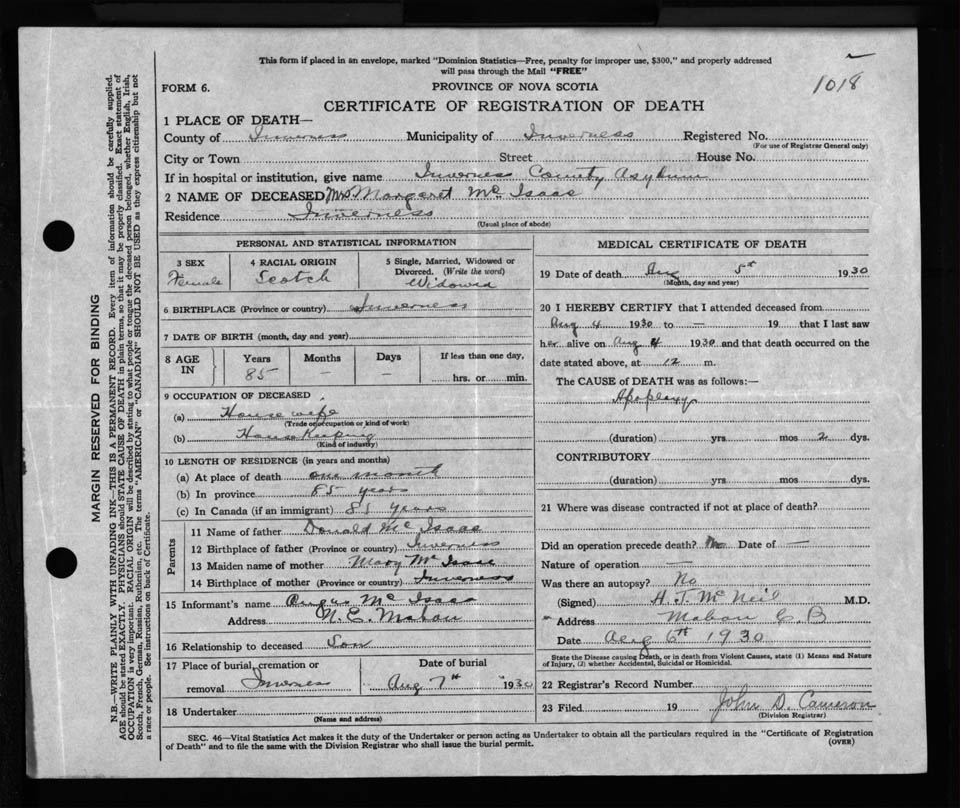 This form if placed in an envelope, marked "Dominion Statistics—Free, penalty for improper use, $300," and properly addressed
will pass through the Mail "FREE"
1018
FORM 6.
PROVINCE OF NOVA SCOTIA
CERTIFICATE OF REGISTRATION OF DEATH
1 PLACE OF DEATH—
County of Inverness Municipality of Inverness Registered No.
(For use of Registrar General only)
City or Town Street House No.
If in hospital or institution, give name Inverness County Asylum
2 NAME OF DECEASED Mrs Margaret Mc Isaac
Residence Inverness
(Usual place of abode)
PERSONAL AND STATISTICAL INFORMATION
3 SEX
Female
4 RACIAL ORIGIN
Scotch
5 Single, Married, Widowed or
Divorced. (Write the word)
Widowed
6 BIRTHPLACE (Province or country) Inverness
7 DATE OF BIRTH (month, day and year)
8 AGE
IN
Years
85
Months
—
Days
—
If less than one day,
hrs. or min.
9 OCCUPATION OF DECEASED
(a) House wife
(Trade or occupation or kind of work)
(b) House Keeping
(Kind of industry)
10 LENGTH OF RESIDENCE (in years and months)
(a) At place of death one month
(b) In province 85 years
(c) In Canada (if an immigrant) 85 years
Parents
11 Name of father Donald Mc Isaac
12 Birthplace of father (Province or country) Inverness
13 Maiden name of mother Mary Mc Isaac
14 Birthplace of mother (Province or country) Inverness
15 Informant's name Angus Mc Isaac
Address N. E. Mabou
16 Relationship to deceased Son
17 Place of burial, cremation or
removal Inverness
Date of burial
Aug 7th 1930
18 Undertaker
(Name and address)
MEDICAL CERTIFICATE OF DEATH
19 Date of death Aug 5th 1930
(Month, day and year)
20 I HEREBY CERTIFY that I attended deceased from
Aug 4 1930 to — 19 that I last saw
her alive on Aug 4 1930 and that death occurred on the
date stated above, at 12 m.
The CAUSE OF DEATH was as follows:—
Apoplexy
(duration) yrs. mos 2 dys.
CONTRIBUTORY
(duration) yrs. mos dys.
21 Where was disease contracted if not at place of death?
Did an operation precede death? No Date of —
Nature of operation —
Was there an autopsy? No
(Signed) A. J. Mc Neil M.D.
Address Mabou C B
Date Aug 6th 1930
State the Disease causing Death, or in death from Violent Causes, state (1) Means and Nature
of Injury, (2) whether Accidental, Suicidal or Homicidal.
22 Registrar's Record Number
23 Filed 19 John D. Cameron
(Division Registrar)
SEC. 46—Vital Statistics Act makes it the duty of the Undertaker or person acting as Undertaker to obtain all the particulars required in the "Certificate of Registration
of Death" and to file the same with the Division Registrar who shall issue the burial permit.
(OVER)
MARGIN RESERVED FOR BINDING
N.B.—WRITE PLAINLY WITH UNFADING INK—THIS IS A PERMANENT RECORD. Every item of information should be carefully supplied.
AGE should be stated EXACTLY. PHYSICIANS should STATE CAUSE OF DEATH in plain terms, so that it may be properly classified. Exact statement of
OCCUPATION is very important. RACIAL ORIGIN will be described by stating to what people or tongue the deceased person belonged, whether English, Irish,
Scotch, French, German, Russian, Ruthenian, etc. The terms "AMERICAN" or "CANADIAN" SHOULD NOT BE USED as they express citizenship but not
a race or people. See instructions on back of Certificate.